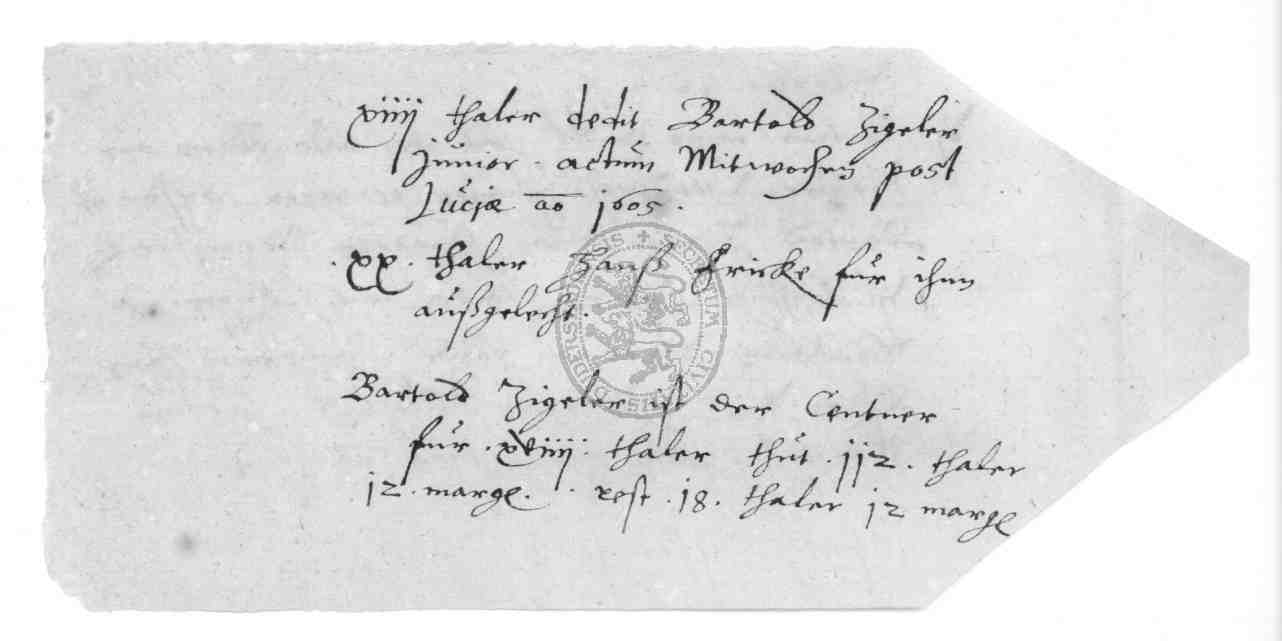 xiiij thaler dedit Bartold Zigeler
Junior. actum Mitwochen post
Luciæ ao 1605.
.xx. thaler Hanß Fricke für ihnn
außgelecht.
Bartold Zigeler ist der Centner
für .xviiij. thaler thut .112. thaler
12. margl. rest .18. thaler 12 margl
SIGILLUM CIVI DUDERSTADENSIS